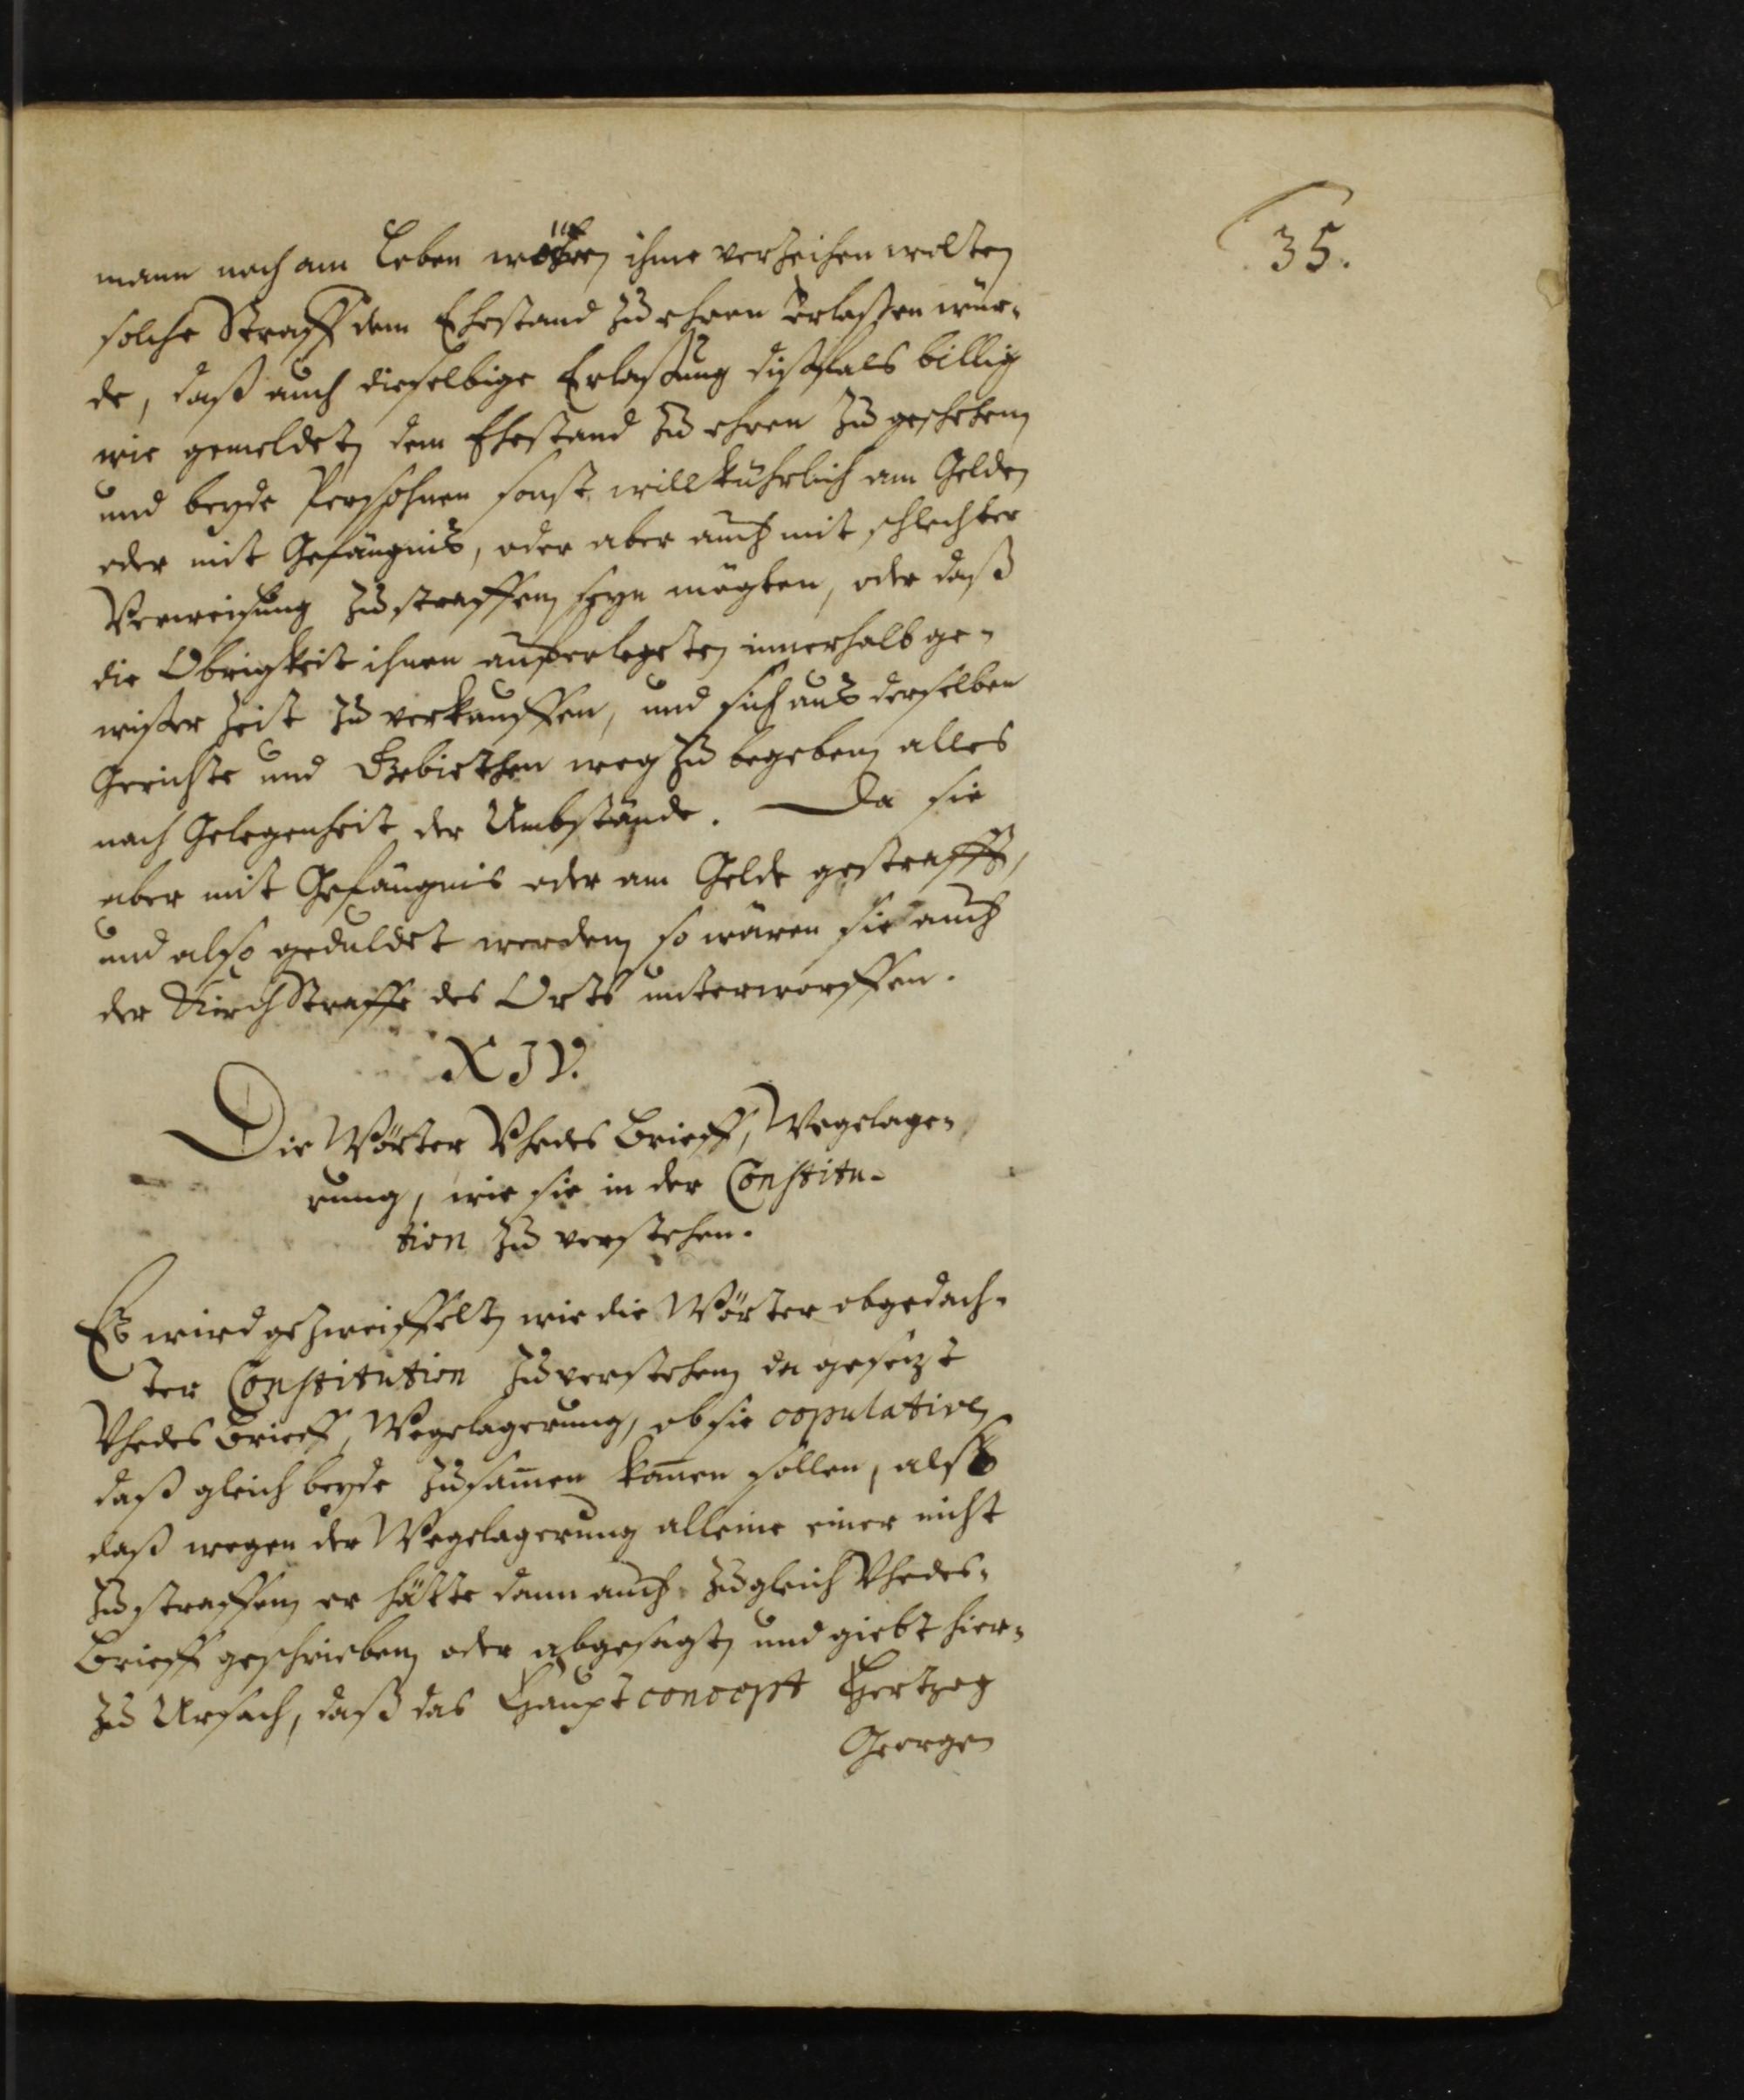 35.
mann noch am Leben ihme verzeihen wolten
solche Straff dem Ehestand zu ehren erlaßen wür-
de, daß auch dieselbige Erlaßung dißfals billig
wie gemeldet, dem Ehestand zu ehren zu geschehen,
und beyde Persohnen sonst willkührlich am Gelde,
oder mit Gefängnis, oder aber auch mit schlechter
Verweisung zu straffen seyn mögten, oder daß
die Obrigkeit ihnen auferlegete, innerhalb ge-
wißer Zeit zu verkauffen, und sich aus derselben
Gerichte und Gebiethen weg zu begeben, alles
nach Gelegenheit der Umbstände. Da sie
aber mit Gefängnis oder am Gelde gestrafft,
und also geduldet werden, so wären sie auch
der KirchStraffe des Orts unterworffen.
XIV.
Die Wörter Vhedes Brieff, Wegelage-
rung, wie sie in der Constitu-
tion zu verstehen.
Es wird gezweiffelt, wie die Wörter obgedach-
ter Constitution zu verstehen, da gesetzt
Vhedes Brieff, Wegelagerung, ob sie copulative,
daß gleich beyde zusam̄en kom̄en sollen, also
daß wegen der Wegelagerung alleine einer nicht
zu straffen, er hätte dann auch zugleich Vhedes-
Brieff geschrieben, oder abgesagt, und giebt hier-
zu Ursach, daß das Haupt concept Hertzog
Georgen